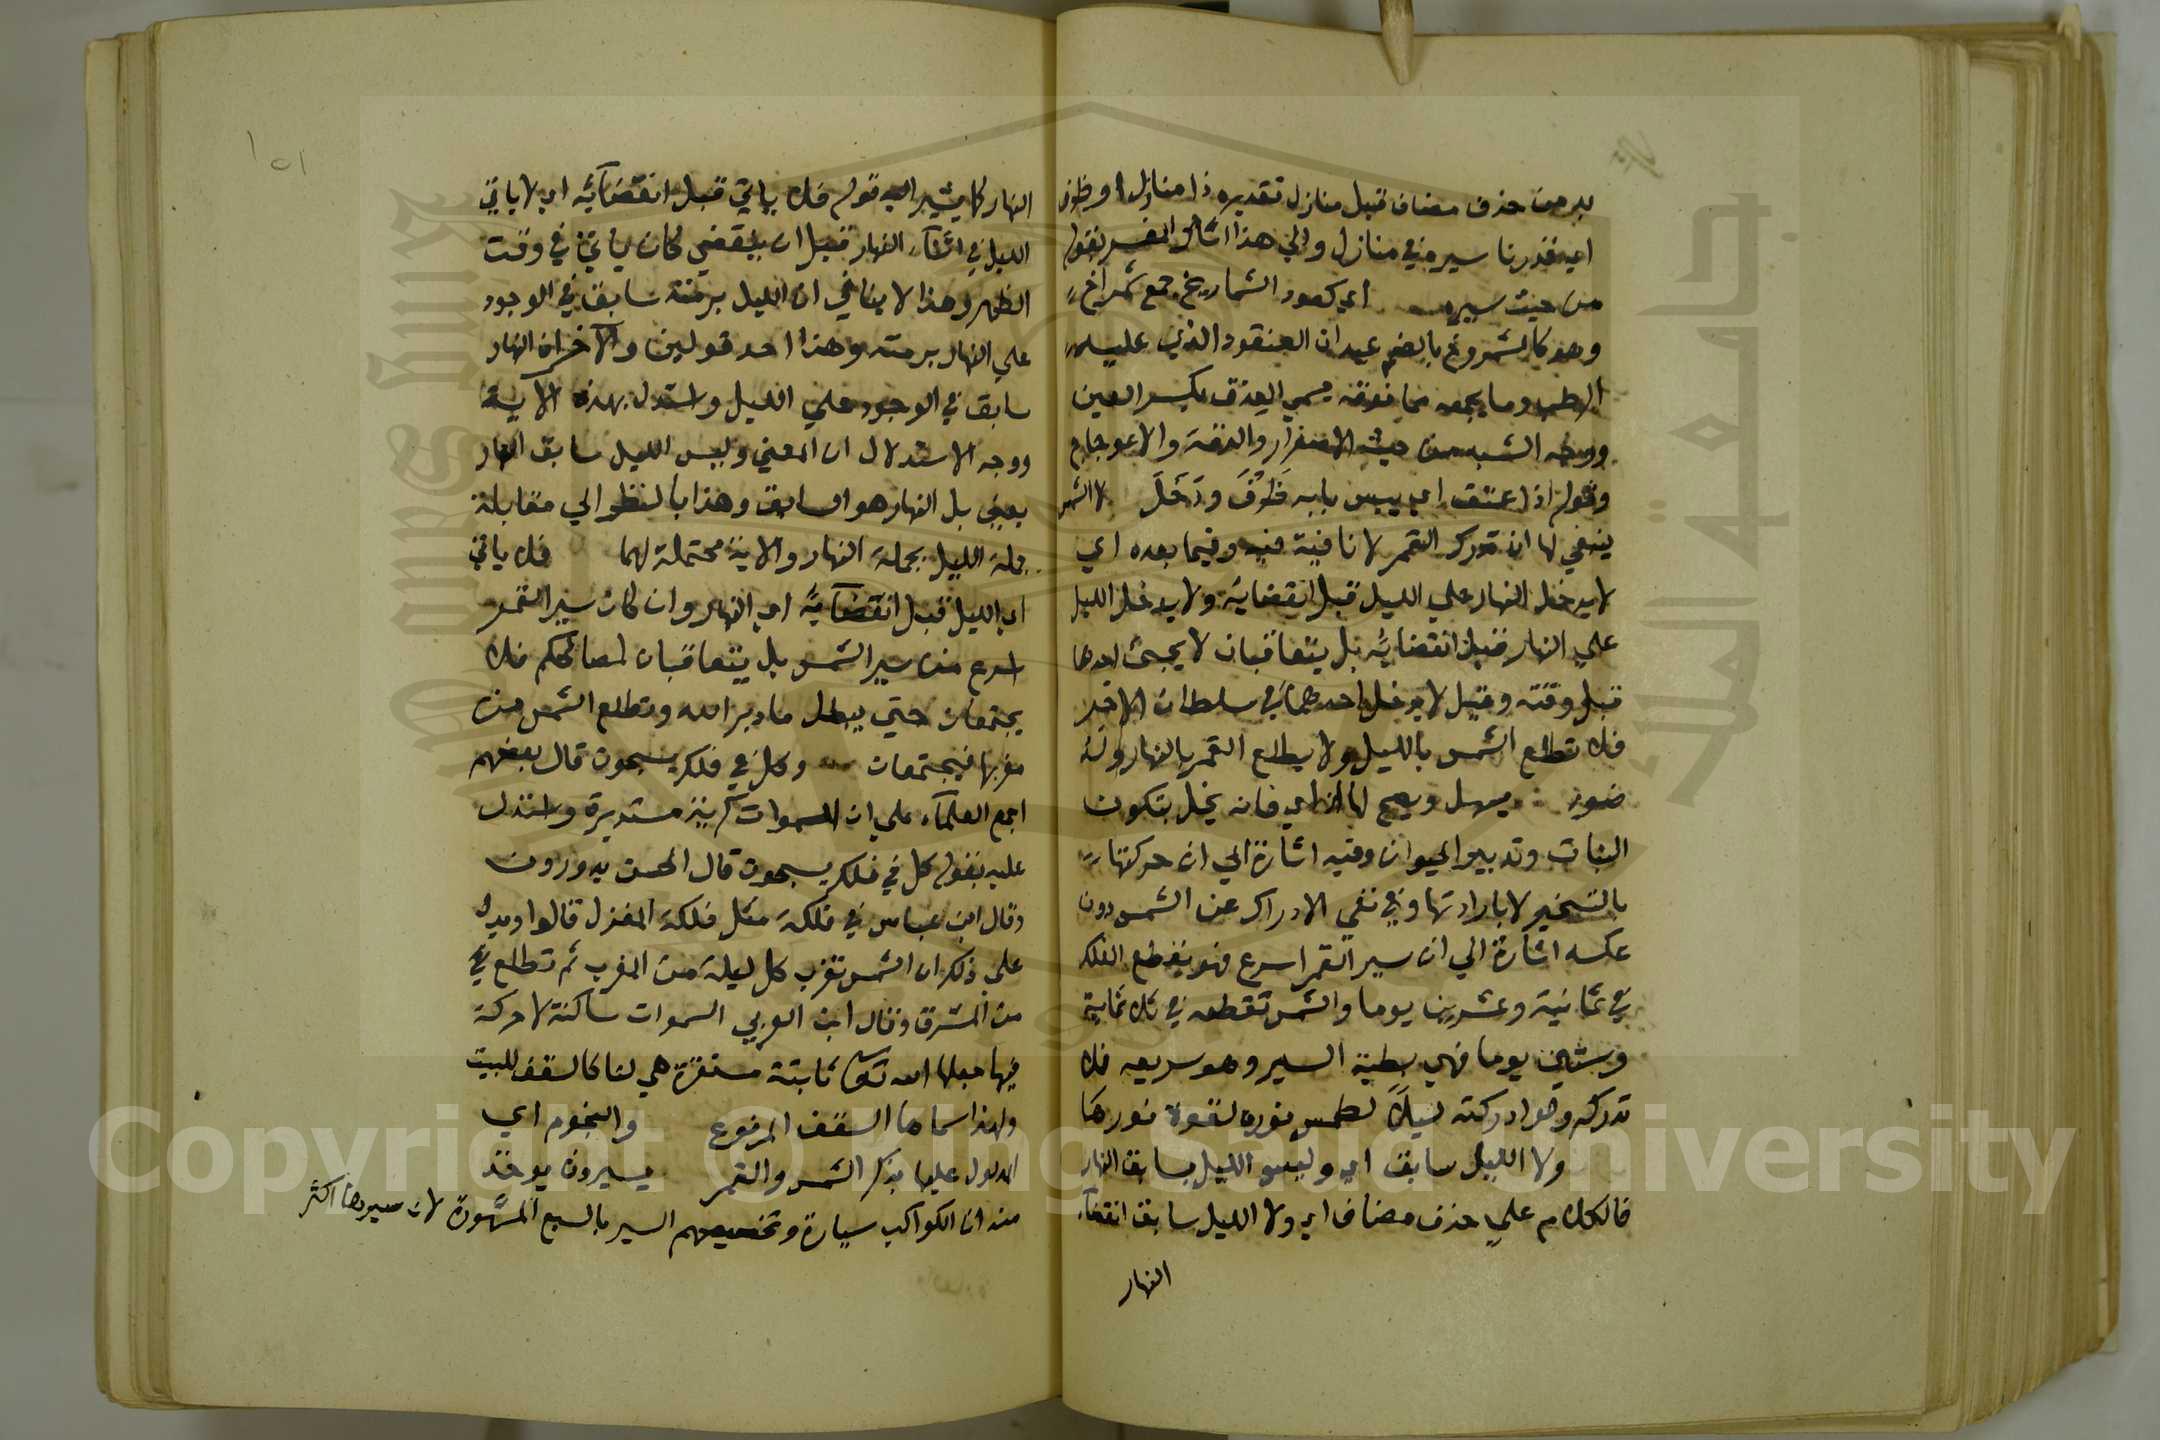 بد من حذف مضاف قبل منازل تقديره ذا منازل او ظرف
اي قدرنا سيره في منازل والي هذا اشار المفسر بقوله
من حيث سيره اي كعود الشماريخ جمع شمراخ
وهو كالشمروخ بالضم عيدان العنقود الذي عليه
الرطب وما يجمعه مما فوقه يسمي العذق بكسر العين
ووجه الشبه من حيث الاصفرار والدقة والاعوجاج
وقوله اذا عتق اي يبس بابه ظرف ودخل لا الشمس
ينبغي لها ان تدرك القمر لا نافية فيه وفيما بعده اي
لا يدخل النهار علي الليل قبل انقضايه ولا يدخل الليل
علي النهار قبل انقضايه بل يتعاقبان لا يجئ احدهما
قبل وقته وقيل لا يدخل احدهما في سلطان الاخر
فلا تطلع الشمس بالليل ولا يطلع القمر بالنهار وله
ضوء يسهل ويصح لها اي فانه يخل بتكون
النبات وتدبير الحيوان وفيه اشارة الي ان حركتها
بالتسخير لا بارادتها وفي نفي الادراك عن الشمس دون
عكسه اشارة الي ان سير القمر اسرع فهو يقطع الفلك
في ثمانية وعشرين يوما والشمس تقطعه في ثلاثماية
وستين يوما فهي بطية السير وهو سريعه فلا
تدركه ولو ادركته ليلا لطمس نوره لقوة نورها
ولا الليل سابق اي وليس الليل بسابق النهار
فالكلام علي حذف مضاف اي ولا الليل سابق انقضآء
النهار
١٥١
النهار كما يشير اليه قوله فلا ياتي قبل انقضآئه اي لا ياتي
الليل في اثنآء النهار قبل ان ينقضي كان ياتي في وقت
الظهر وهذا لا ينافي ان الليل برمته سابق في الوجود
علي النهار برمته وهذا احد قولين والآخر ان النهار
سابق في الوجود علي الليل واستدل بهذه الاية
ووجه الاستدلال ان المعني وليس الليل سابق النهار
يعني بل النهار هو السابق وهذا بالنظر الي مقابلة
جملة الليل بجملة النهار والاية محتملة لهما فلا ياتي
اي الليل قبل انقضآئه اي النهار وان كان سير القمر
اسرع من سير الشمس بل يتعاقبان لمصالحكم فلا
يجتمعان حتي يبطل ما دبر الله وتطلع الشمس من
مغربها فيجتمعان وكل في فلك يسبحون قال بعضهم
اجمع العلمآء علي ان السموات كرية مستديرة واستدل
عليه بقوله كل في فلك يسبحون قال الحسن يدورون
وقال ابن عباس في فلكة مثل فلكة المغزل قالوا ويدل
علي ذلك ان الشمس تغرب كل ليلة من المغرب ثم تطلع في
من المشرق وقال ابن العربي السموات ساكنة لا حركة
فيها جعلها الله تعالى ثابتة مستقرة هي لنا كالسقف للبيت
ولهذا سماها السقف المرفوع والنجوم اي
المدلول عليها بذكر الشمس والقمر يسيرون يوخذ
منه ان الكواكب سيارة وتخصيصهم السير بالسبع المشهورة لان سيرها اكثر
Copyright © King Saud University